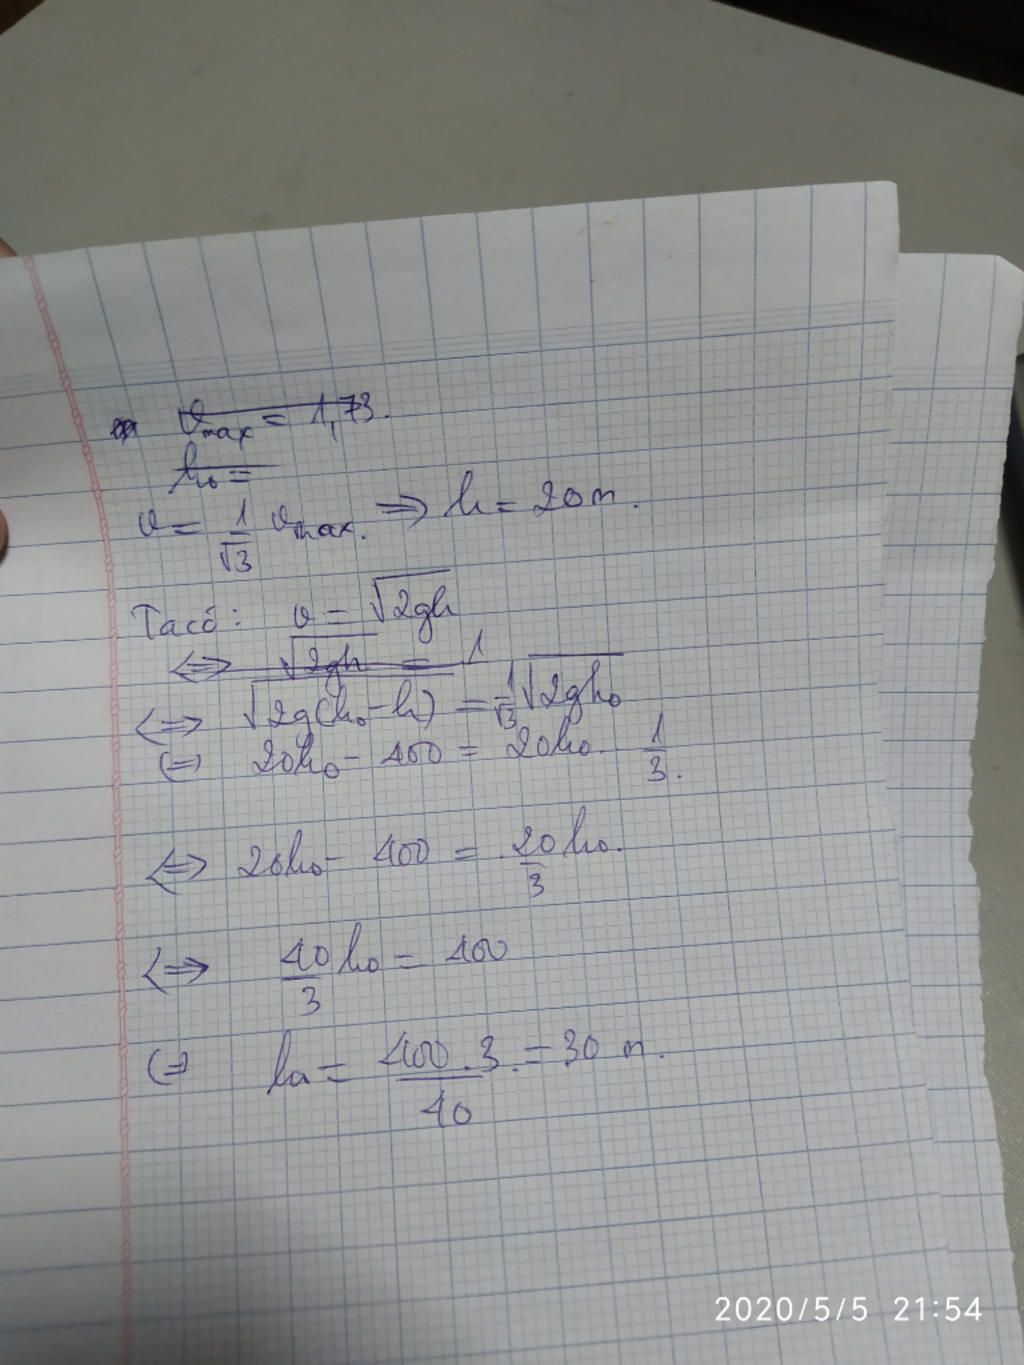 v_max = 1,73.
h₀ =
v = 1/√3 v_max. ⇒ h = 20m.
Ta có: v = √2gh
⇔ √2gh = 1
⇔ √2g(h₀-h) = 1/√3 √2gh₀
(=) 20h₀ - 400 = 20h₀. 1/3.
⇔ 20h₀ - 400 = 20/3 h₀.
⇔ 40/3 h₀ = 400
(=) h₀ = 400.3/40 = 30 m.
2020/5/5 21:54